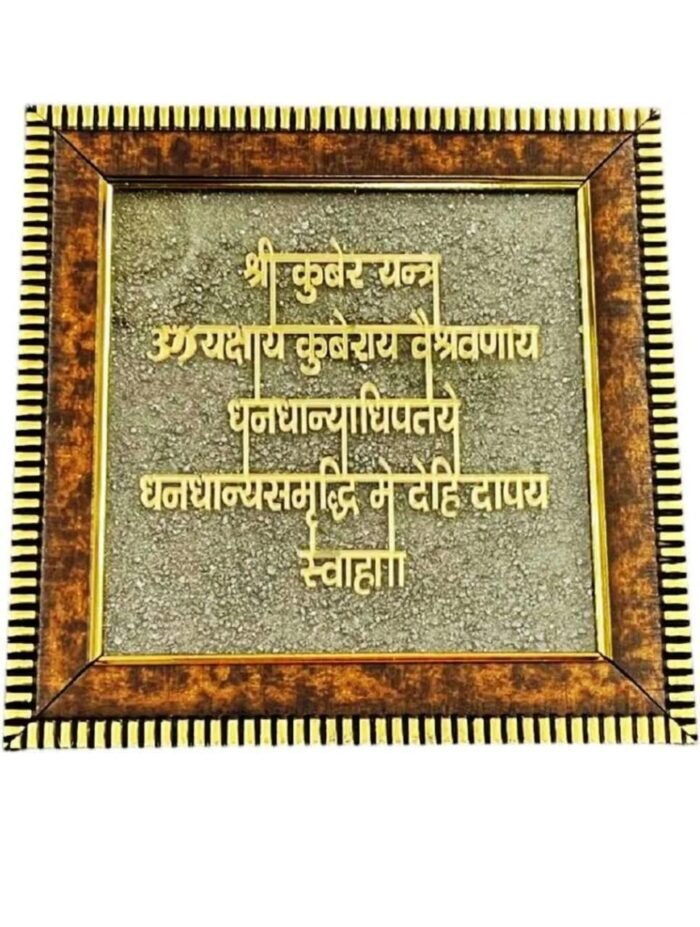 श्री कुबेर यन्त्र
ॐ यक्षाय कुबेराय वैश्रवणाय
धनधान्याधिपतये
धनधान्यसमृद्धि मे देहि दापय
स्वाहा॥